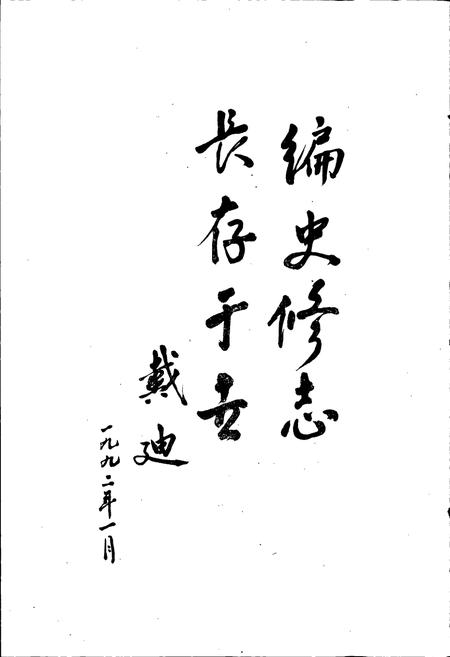 编史修志
長存于世
戴迪
一九九二年一月